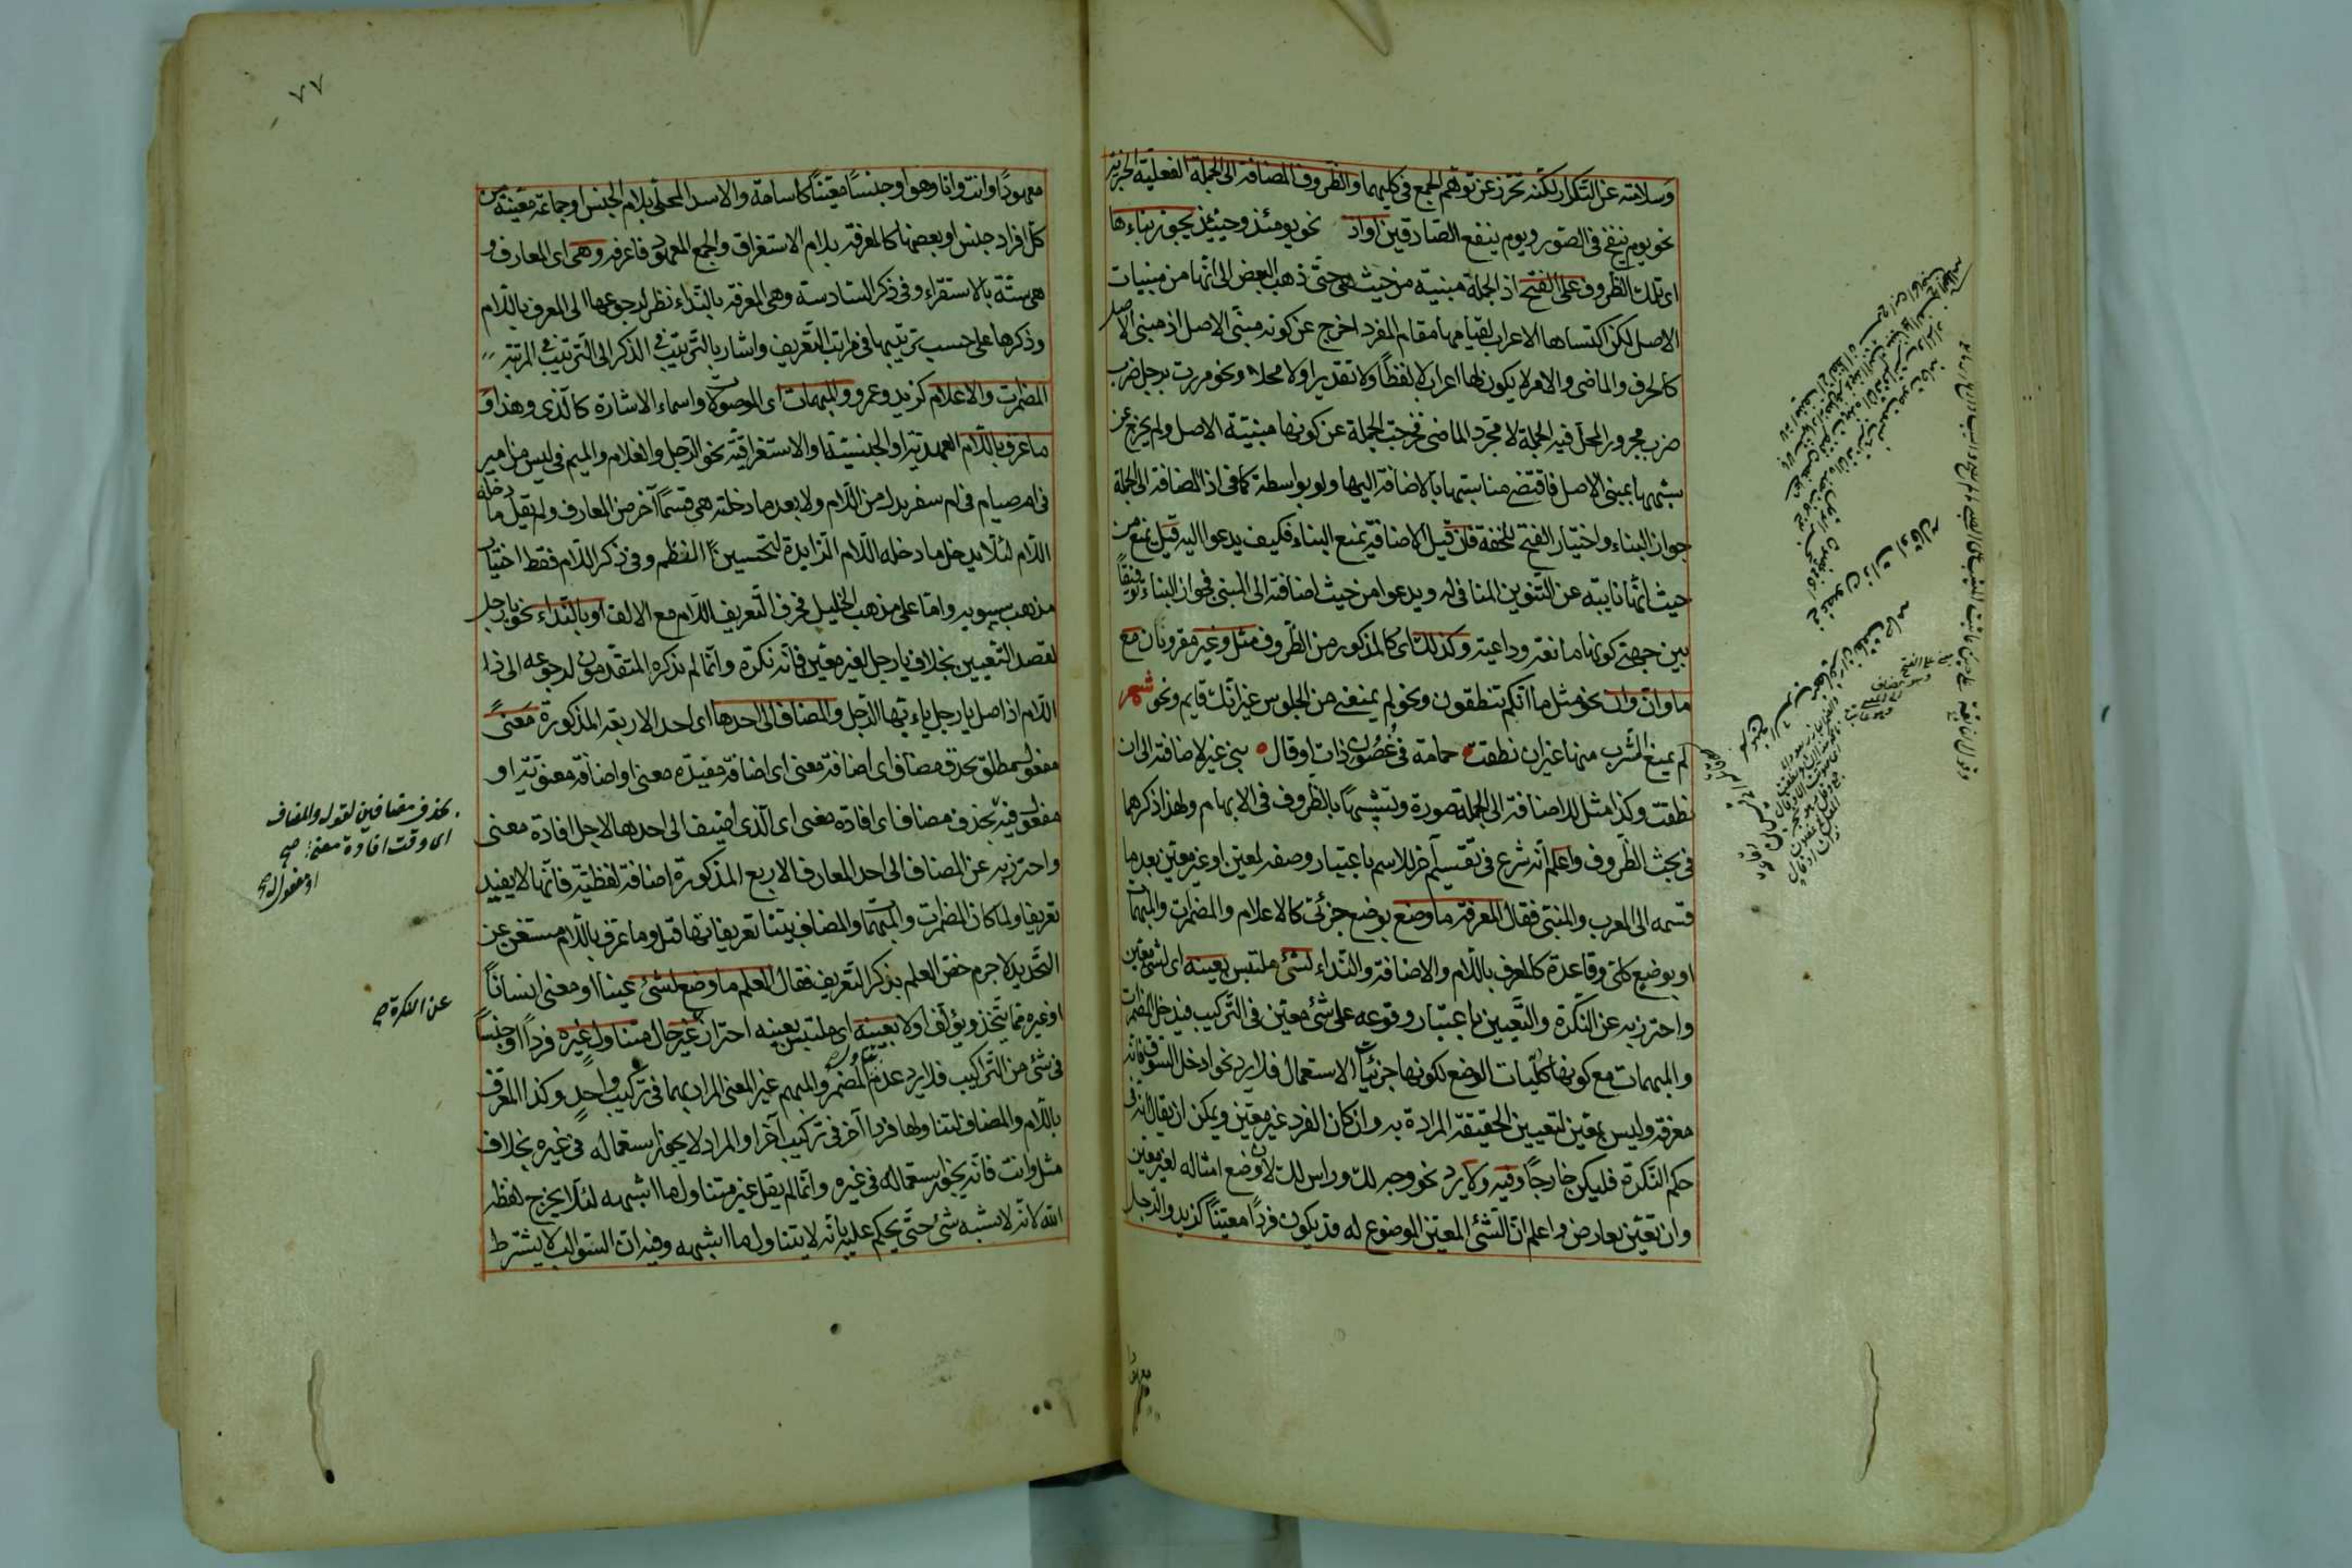 وسلامته عن التكرار لكنه تحرز عن توهم الجمع في كليهما والظروف المضافة الى الجملة الفعلية الخبرية
نحو يوم ينفخ في الصور ويوم ينفع الصادقين او اذ نحو يومئذ وحينئذ يجوز بناءها
اى تلك الظروف على الفتح اذ الجملة مبنية من حيث هى حتى ذهب البعض الى انها من مبنيات
الاصل لكن اكتسابها الاعراب لقيامها مقام المفرد اخرج عن كونه مبنى الاصل اذ مبنى الاصل
كالحرف والماضى والامر لا يكون لها اعراب لا لفظاً ولا تقديرا ولا محلا ونحو مررت برجل ضرب
ضرب مجرور المحل فيه الجملة لا مجرد الماضى فخرجت الجملة عن كونها مبنية الاصل ولم يخرج عن
شبهها بمبنى الاصل فاقتضى مناسبتها بالاضافة اليها ولو بواسطة كما فى اذ المضافة الى الجملة
جواز البناء واختيار الفتح للخفة فان قيل الاضافة تمنع البناء فكيف يدعوا اليه قيل تمنع من
حيث انها نايبه عن التنوين المنافى له ويدعوا من حيث اضافة الى المبنى فجواز البناء توفيقاً
بين جهتى كونها مانعة وداعية وكذلك اى كالمذكور من الظروف مثل وغير مقرونان مع
ما وان وان نحو مثل ما انكم تنطقون ونحو لم يمنعنى من الجلوس غير انك قايم ونحو شعر
لم يمنع الشرب منها غير ان نطقت حمامة في غصون ذات اوقال بنى غير لاضافته الى ان
نطقت وكذا مثل للاضافة الى الجملة صورة ولتشبهها بالظروف فى الابهام ولهذا ذكرهما
فى بحث الظروف واعلم انه شرع فى تقسيم آخر للاسم باعتبار وصفه لمعين او غير معين بعد ما
قسمه الى المعرب والمبنى فقال المعرفة ما وضع بوضع جزئى كالاعلام والمضمرات والمبهمات
او بوضع كلى وقاعدة كالمعرف باللام والاضافة والنداء لشئ ملتبس بعينه اى لشئ معين
واحترز به عن النكرة والتعيين باعتبار وقوعه على شئ معين فى التركيب فيدخل المضمرات
والمبهمات مع كونها كليات الوضع لكونها جزئيات الاستعمال فلا يرد نحو ادخل السوق فانه
معرفة وليس بمعين لتعيين الحقيقة المرادة به وان كان الفرد غير معين ويمكن ان يقال انه فى
حكم النكرة فليكن خارجاً وفيه ولا يرد نحو وجه لك وراس لك لان وضع امثاله لغير معين
وان تعين بعارض واعلم ان الشئ المعين الموضوع له قد يكون فرداً معيناً كزيد والرجل
٧٧
معهوداً وانت وانا وهو او جنساً معيناً كاسامة والاسد المحلى بلام الجنس او جماعة معينة من
كل افراد جنس او بعضها كالمعرفة بلام الاستغراق والجمع المعهود فاعرفه وهى اى المعارف و
هى ستة بالاستقراء وفى ذكر السادسة وهى المعرفة بالنداء نظر لرجوعها الى المعرف باللام
وذكرها على حسب ترتيبها فى مراتب التعريف واشار بالترتيب فى الذكر الى الترتيب فى المرتبة
المضمرات والاعلام كزيد وعمرو والمبهمات اى الموصولات واسماء الاشارة كالذى وهذا و
ما عرف باللام العهدية او الجنسية او الاستغراقية نحو الرجل والغلام والميم فى ليس من امبر
فى امصيام فى ام سفر بدل من اللام ولا بعد ما دخلته هى قسماً آخر من المعارف ولم يقل ما دخله
اللام لئلا يدخل ما دخله اللام الزايدة لتحسين اللفظ وفى ذكر اللام فقط اختيار
مذهب سيبويه واما على مذهب الخليل فحرف التعريف اللام مع الالف او بالنداء نحو يا رجل
لقصد التعيين بخلاف يا رجل لغير معين فانه نكرة وانما لم يذكره المتقدمون لرجوعه الى ذا
اللام اذ اصل يا رجل يا ايها الرجل والمضاف الى احدها اى احد الاربعة المذكورة معنىً
مفعول مطلق بحذف مضاف اى اضافة معنى اى اضافة مفيدة معنى او اضافة معنوية او
مفعول فيه بحذف مضاف اى افادة معنى اى الذى اضيف الى احدها لاجل افادة معنى
واحترز به عن المضاف الى احد المعارف الاربع المذكورة اضافة لفظية فانها لا يفيد
تعريفا ولما كان المضمرات والمبهمات والمضاف بينا تعريفاتها قبل وما عرف باللام مستغن عن
التحديد لا جرم خص العلم بذكر التعريف فقال العلم ما وضع لشئ عينا او معنى انساناً
او غيره مما يتخذ ويؤلف اولا بعينه اى ملتبس بعينه احتراز غير حال متناول غيره فرداً او جنساً
فى شئ من التراكيب فلا يرد عدم تناول المضمر والمبهم غير المعنى المراد بهما فى تركيب واحد وكذا المعرف
باللام والمضاف لتناولها فردا آخر فى تركيب آخر او المراد لا يجوز استعماله فى غيره بخلاف
مثل وانت فانه يجوز استعماله فى غيره وانما لم يقل غير متناول ما اشبهه لئلا يخرج لفظ
الله لانه لا يشبه شئ حتى يحكم عليه بانه لا يتناول ما اشبهه وفيه ان السوالب لا يشترط
بحذف مضافين لقوله والمضاف
اى وقت افادة معنى صح
او مفعول له صح
عن النكرة صح